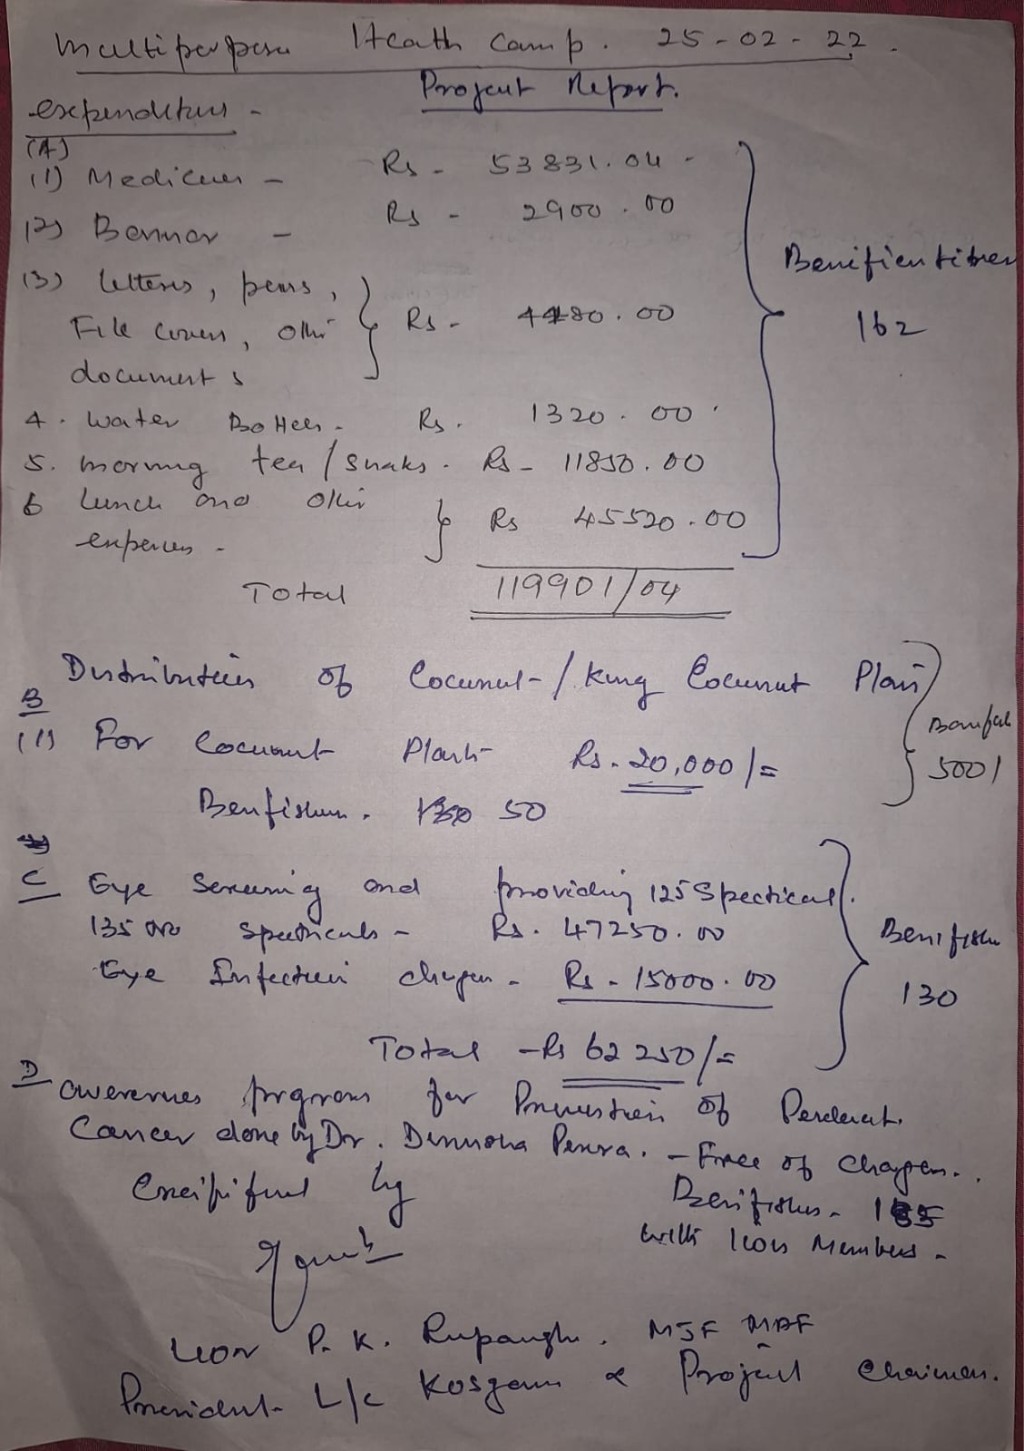 Multiperpose Heath Camp. 25-02-22.
Project Report.
expenditure -
(A)
(1) Medicines - Rs - 53831.04 -
(2) Banner - Rs - 2900.00
(3) letters, pens,
File covers, other Rs - 4480.00
documents
Benificiaries
162
4. Water Bottles. Rs. 1320.00
5. morning tea / snaks. Rs - 11850.00
6 Lunch and other Rs 45520.00
expences -
Total 119901/04
B Distribution of Coconut / King Coconut Plan
(1) For Coconut Plant Rs. 20,000/=
50
C Eye Screening and providing 125 Spectical.
135 no Specticals - Rs. 47250.00
Eye Infection chargers - Rs - 15000.00
130
Total - Rs 62250/=
D awerenes program for Prevention of
Cancer done by Dr. Dinusha Perera. - Free of chargers.
by
with lion Members -
Lion P. K. Rupasinghe. MJF
President L/c Kosgama & Project Chairman.